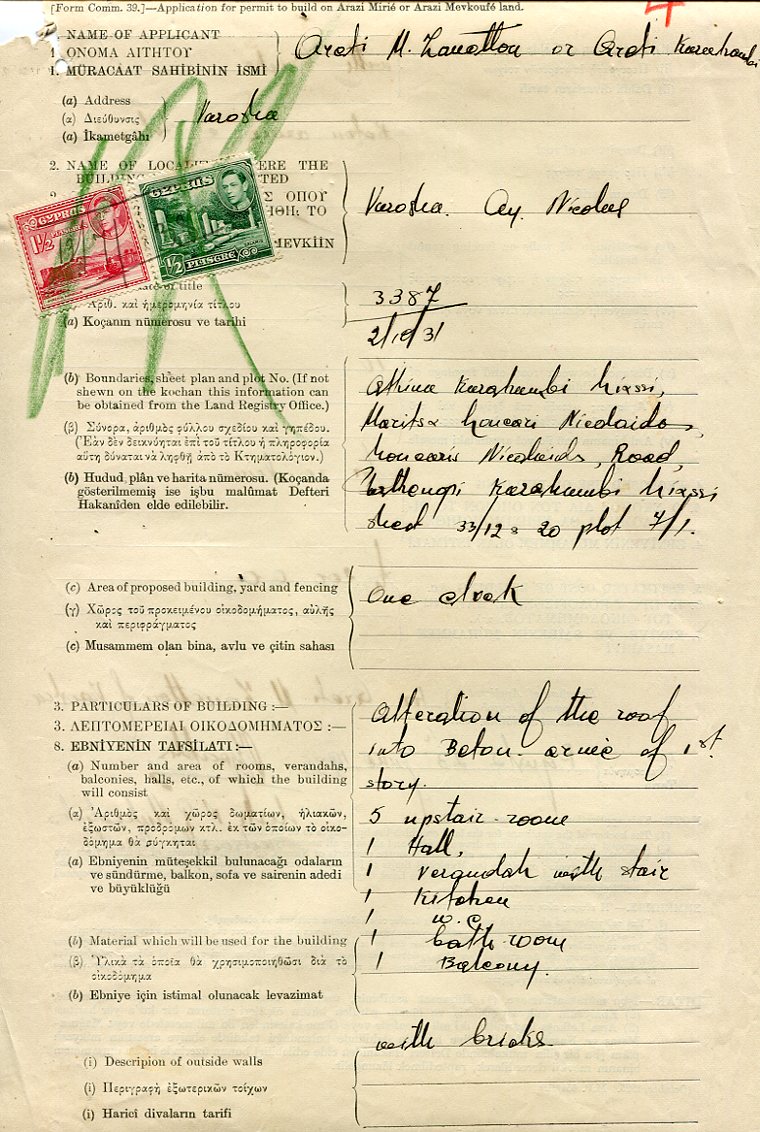 [Form Comm. 39.]—Application for permit to build on Arazi Mirié or Arazi Mevkoufé land.
4
1. NAME OF APPLICANT
1. ΟΝΟΜΑ ΑΙΤΗΤΟΥ
1. MÜRACAAT SAHİBİNİN İSMİ
Areti M. Zanettou or Areti
(a) Address
(α) Διεύθυνσις
(a) İkametgâhı
Varosha
2. NAME OF LOCALITY WHERE THE
BUILDING TED
Σ ΟΠΟΥ
ΤΟ
MEVKİİN
Varosha. Ay. Nicolas
CYPRUS
1½
PIASTRE
CYPRUS
½ PIASTRE
SALAMIS
date of title
Ἀριθ. καὶ ἡμερομηνία τίτλου
(a) Koçanın nümerosu ve tarihi
3387
2/10/31
(b) Boundaries, sheet plan and plot No. (If not
shewn on the kochan this information can
be obtained from the Land Registry Office.)
(β) Σύνορα, ἀριθμὸς φύλλου σχεδίου καὶ γηπέδου.
(Ἐὰν δὲν δεικνύηται ἐπὶ τοῦ τίτλου ἡ πληροφορία
αὕτη δύναται νὰ ληφθῇ ἀπὸ τὸ Κτηματολόγιον.)
(b) Hudud, plân ve harita nümerosu. (Koçanda
gösterilmemiş ise işbu malûmat Defteri
Hakanîden elde edilebilir.
Athina Karahambi
Maritsa Nicolaidou,
Nicolaides, Road,
Karahambi
33/12 20 plot 7/1.
(c) Area of proposed building, yard and fencing
(γ) Χῶρος τοῦ προκειμένου οἰκοδομήματος, αὐλῆς
καὶ περιφράγματος
(c) Musammem olan bina, avlu ve çitin sahası
One
3. PARTICULARS OF BUILDING :—
3. ΛΕΠΤΟΜΕΡΕΙΑΙ ΟΙΚΟΔΟΜΗΜΑΤΟΣ :—
8. EBNİYENİN TAFSİLATI :—
Alteration of the roof
into Beton armée of 1st.
story.
(a) Number and area of rooms, verandahs,
balconies, halls, etc., of which the building
will consist
(α) Ἀριθμὸς καὶ χῶρος δωματίων, ἡλιακῶν,
ἐξωστῶν, προδρόμων κτλ. ἐκ τῶν ὁποίων τὸ οἰκο-
δόμημα θὰ σύγκηται
(a) Ebniyenin müteşekkil bulunacağı odaların
ve sündürme, balkon, sofa ve sairenin adedi
ve büyüklüğü
5 upstair room
1 Hall,
1 verandah with stair
1 Kitchen
1 w.c
1 bath-room
1 Balcony.
(b) Material which will be used for the building
(β) Ὑλικὰ τὰ ὁποῖα θὰ χρησιμοποιηθῶσι διὰ τὸ
οἰκοδόμημα
(b) Ebniye için istimal olunacak levazimat
with bricks
(i) Descripion of outside walls
(i) Περιγραφὴ ἐξωτερικῶν τοίχων
(i) Haricî divaların tarifi